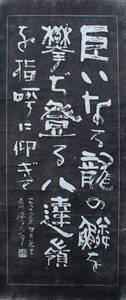 巨いなる龍の鱗を
攀ぢ登る八達嶺
を指呼に仰ぎて